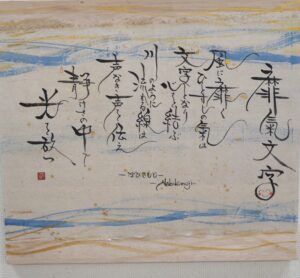 靡氣文字
風に靡く
ひとすじの氣は
文字となり
心を結ぶ
川のように
流れる線は
声なき声を伝え
静けさの中で
光を放つ